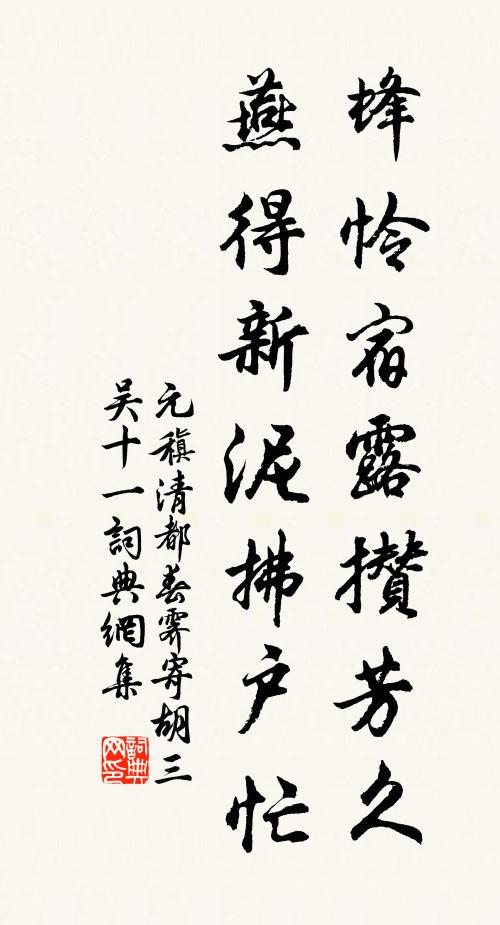 蜂怜宿露攢芳久
燕得新泥拂户忙
元稹清都春霽寄胡三
吴十一詞典網集
詞典
网印